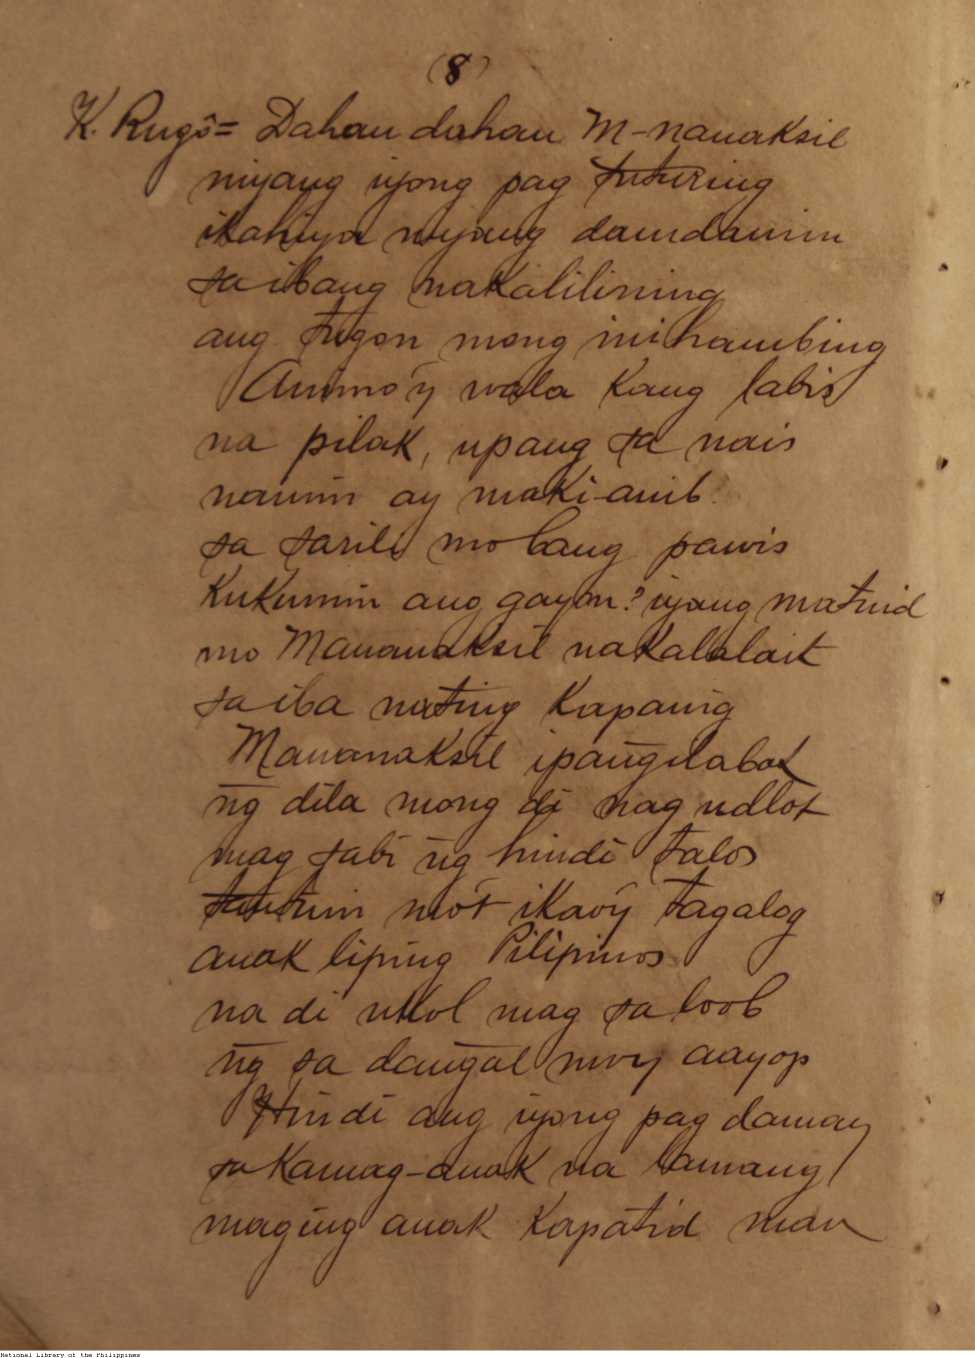 (8)
K. Rugô= Dahan dahan M-nanaksil
niyang iyong pag tuturing
ikahiya niyang damdamin
sa ibang nakalilining
ang tugon mong inihambing
Animo'ÿ wala kang labis
na pilak, upang sa nais
namin ay maki-anib.
sa sarili mo bang pawis
kukunin ang gayon? iyang matuid
mo Mananaksil nakalalait
sa iba nating kapanig
Mananaksil ipañgilabot
ñg dila mong di nag udlot
mag sabi ñg hindi talos
mót ikaóy tagalog
anak liping Pilipinos
na di ukol mag sa loob
ñg sa dañgal moy aayop
Hindi ang iyong pag damay
sa kamag-anak na lamang
maging anak kapatid man
National Library of the Philippines